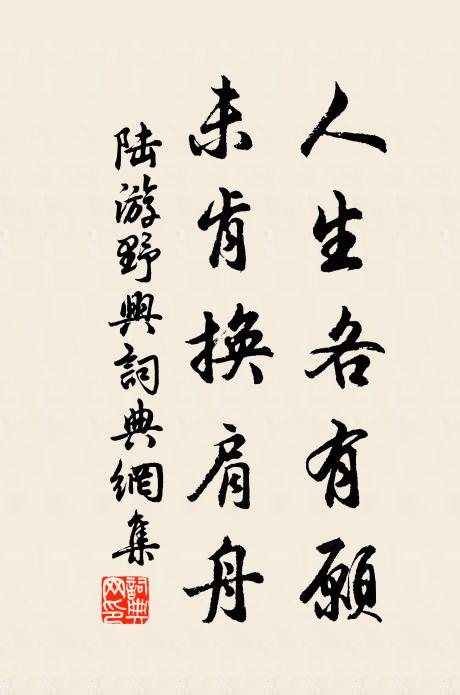 人生各有願
未肯換肩舟
陸游野興詞典網集
詞典
网印